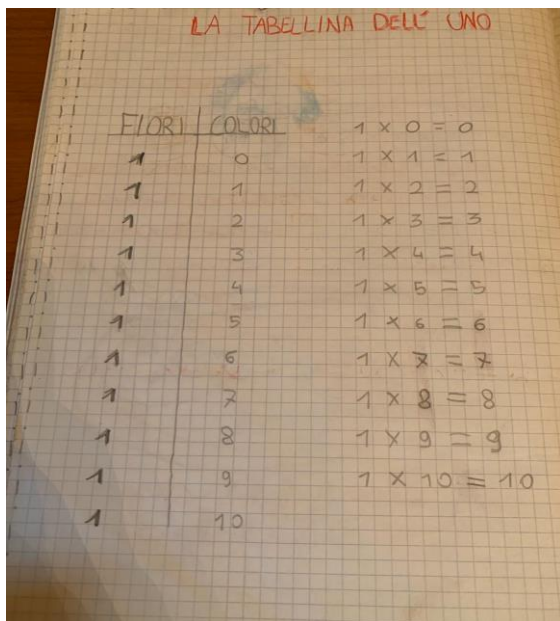 LA TABELLINA DELL' UNO
FIORI COLORI
1 0
1 1
1 2
1 3
1 4
1 5
1 6
1 7
1 8
1 9
1 10
1 x 0 = 0
1 x 1 = 1
1 x 2 = 2
1 x 3 = 3
1 x 4 = 4
1 x 5 = 5
1 x 6 = 6
1 x 7 = 7
1 x 8 = 8
1 x 9 = 9
1 x 10 = 10